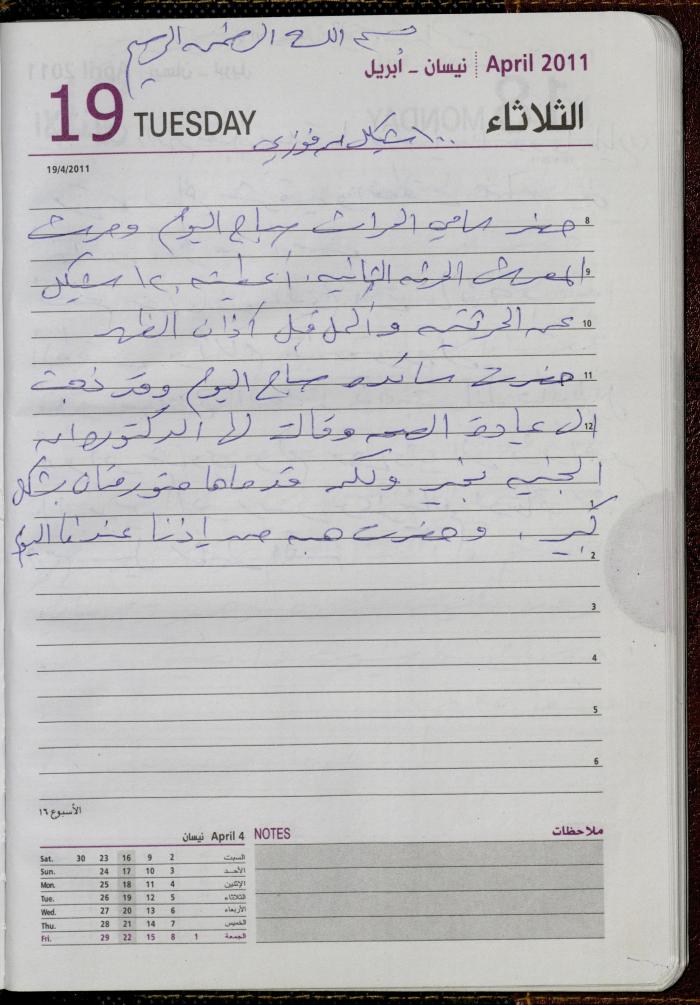 بسم الله الرحمن الرحيم
April 2011 نيسان - أبريل
19 TUESDAY الثلاثاء
١٠٠ شيكل من فوزي
19/4/2011
8 حضر سامي الحراث صباح اليوم وحرث
9 الحرثه الثانيه، أعطيته ١٢٠ شيكل
10 عن الحرثتين وأكمل قبل أذان الظهر
11 حضرت سائده صباح اليوم وقد ذهبت
12 الى عيادة الصحه وقالت لها الدكتوره ان
الجنين بخير ولكن قدماها متورمتان بشكل
1 كبير. وحضرت هبه من إذنا عندنا اليوم
2
3
4
5
6
الأسبوع ١٦
April 4 نيسان
NOTES ملاحظات
Sat. 30 23 16 9 2 السبت
Sun. 24 17 10 3 الأحد
Mon. 25 18 11 4 الإثنين
Tue. 26 19 12 5 الثلاثاء
Wed. 27 20 13 6 الأربعاء
Thu. 28 21 14 7 الخميس
Fri. 29 22 15 8 1 الجمعة